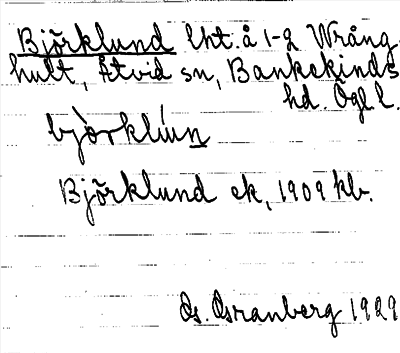 Björklund lht. å 1-2 Wrång-
hult, Åtvid sn, Bankekinds
hd. Ögl l.
bjö̀rklúun
Björklund ek, 1909 kb.
Os. Osranberg 1929